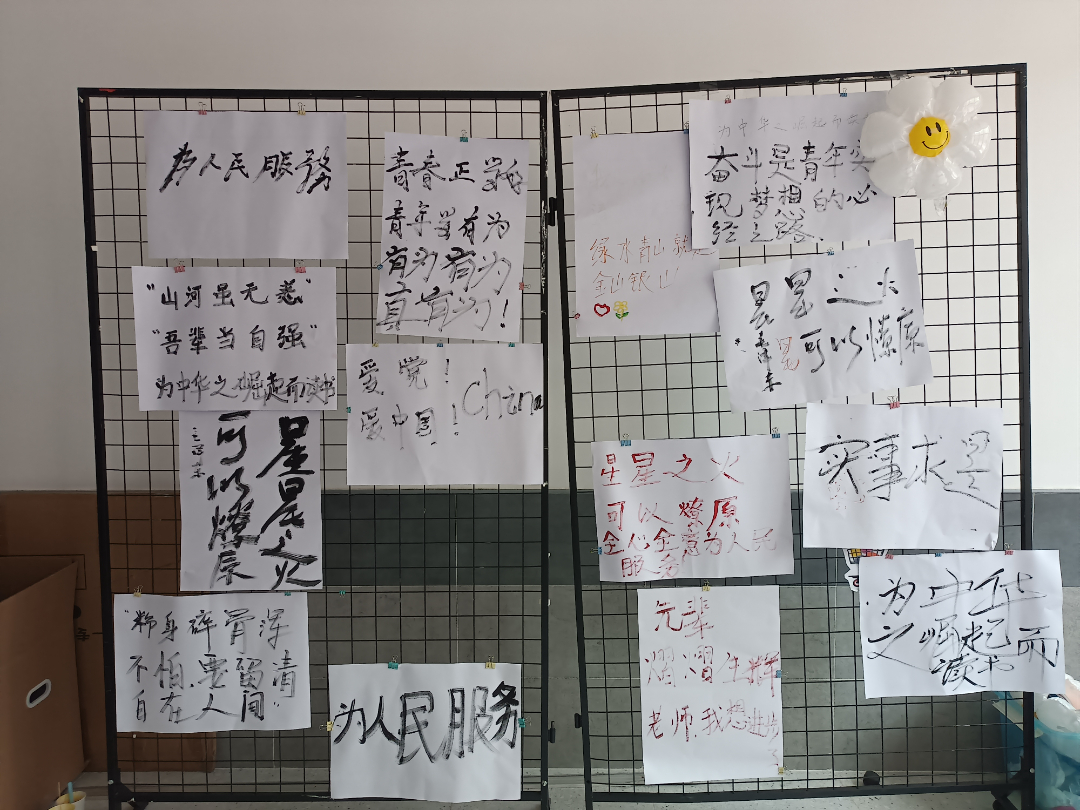 为人民服務
"山河虽无恙"
"吾辈当自强"
为中华之崛起而读书
星星之火
可以燎原
"粉身碎骨浑
不怕,要留清
自在人间"
青春正当
青年当有为
有为有为
真有为!
爱党!
爱中国!China
为人民服务
绿水青山就是
金山银山
为中华之崛起而
奋斗是青年实
现梦想的心
经之路
星星之火
可以燎原
星星之火
可以燎原
全心全意为人民
服务
实事求是
先辈
熠熠生辉
老师我想进步
了
为中华
之崛起而
读书